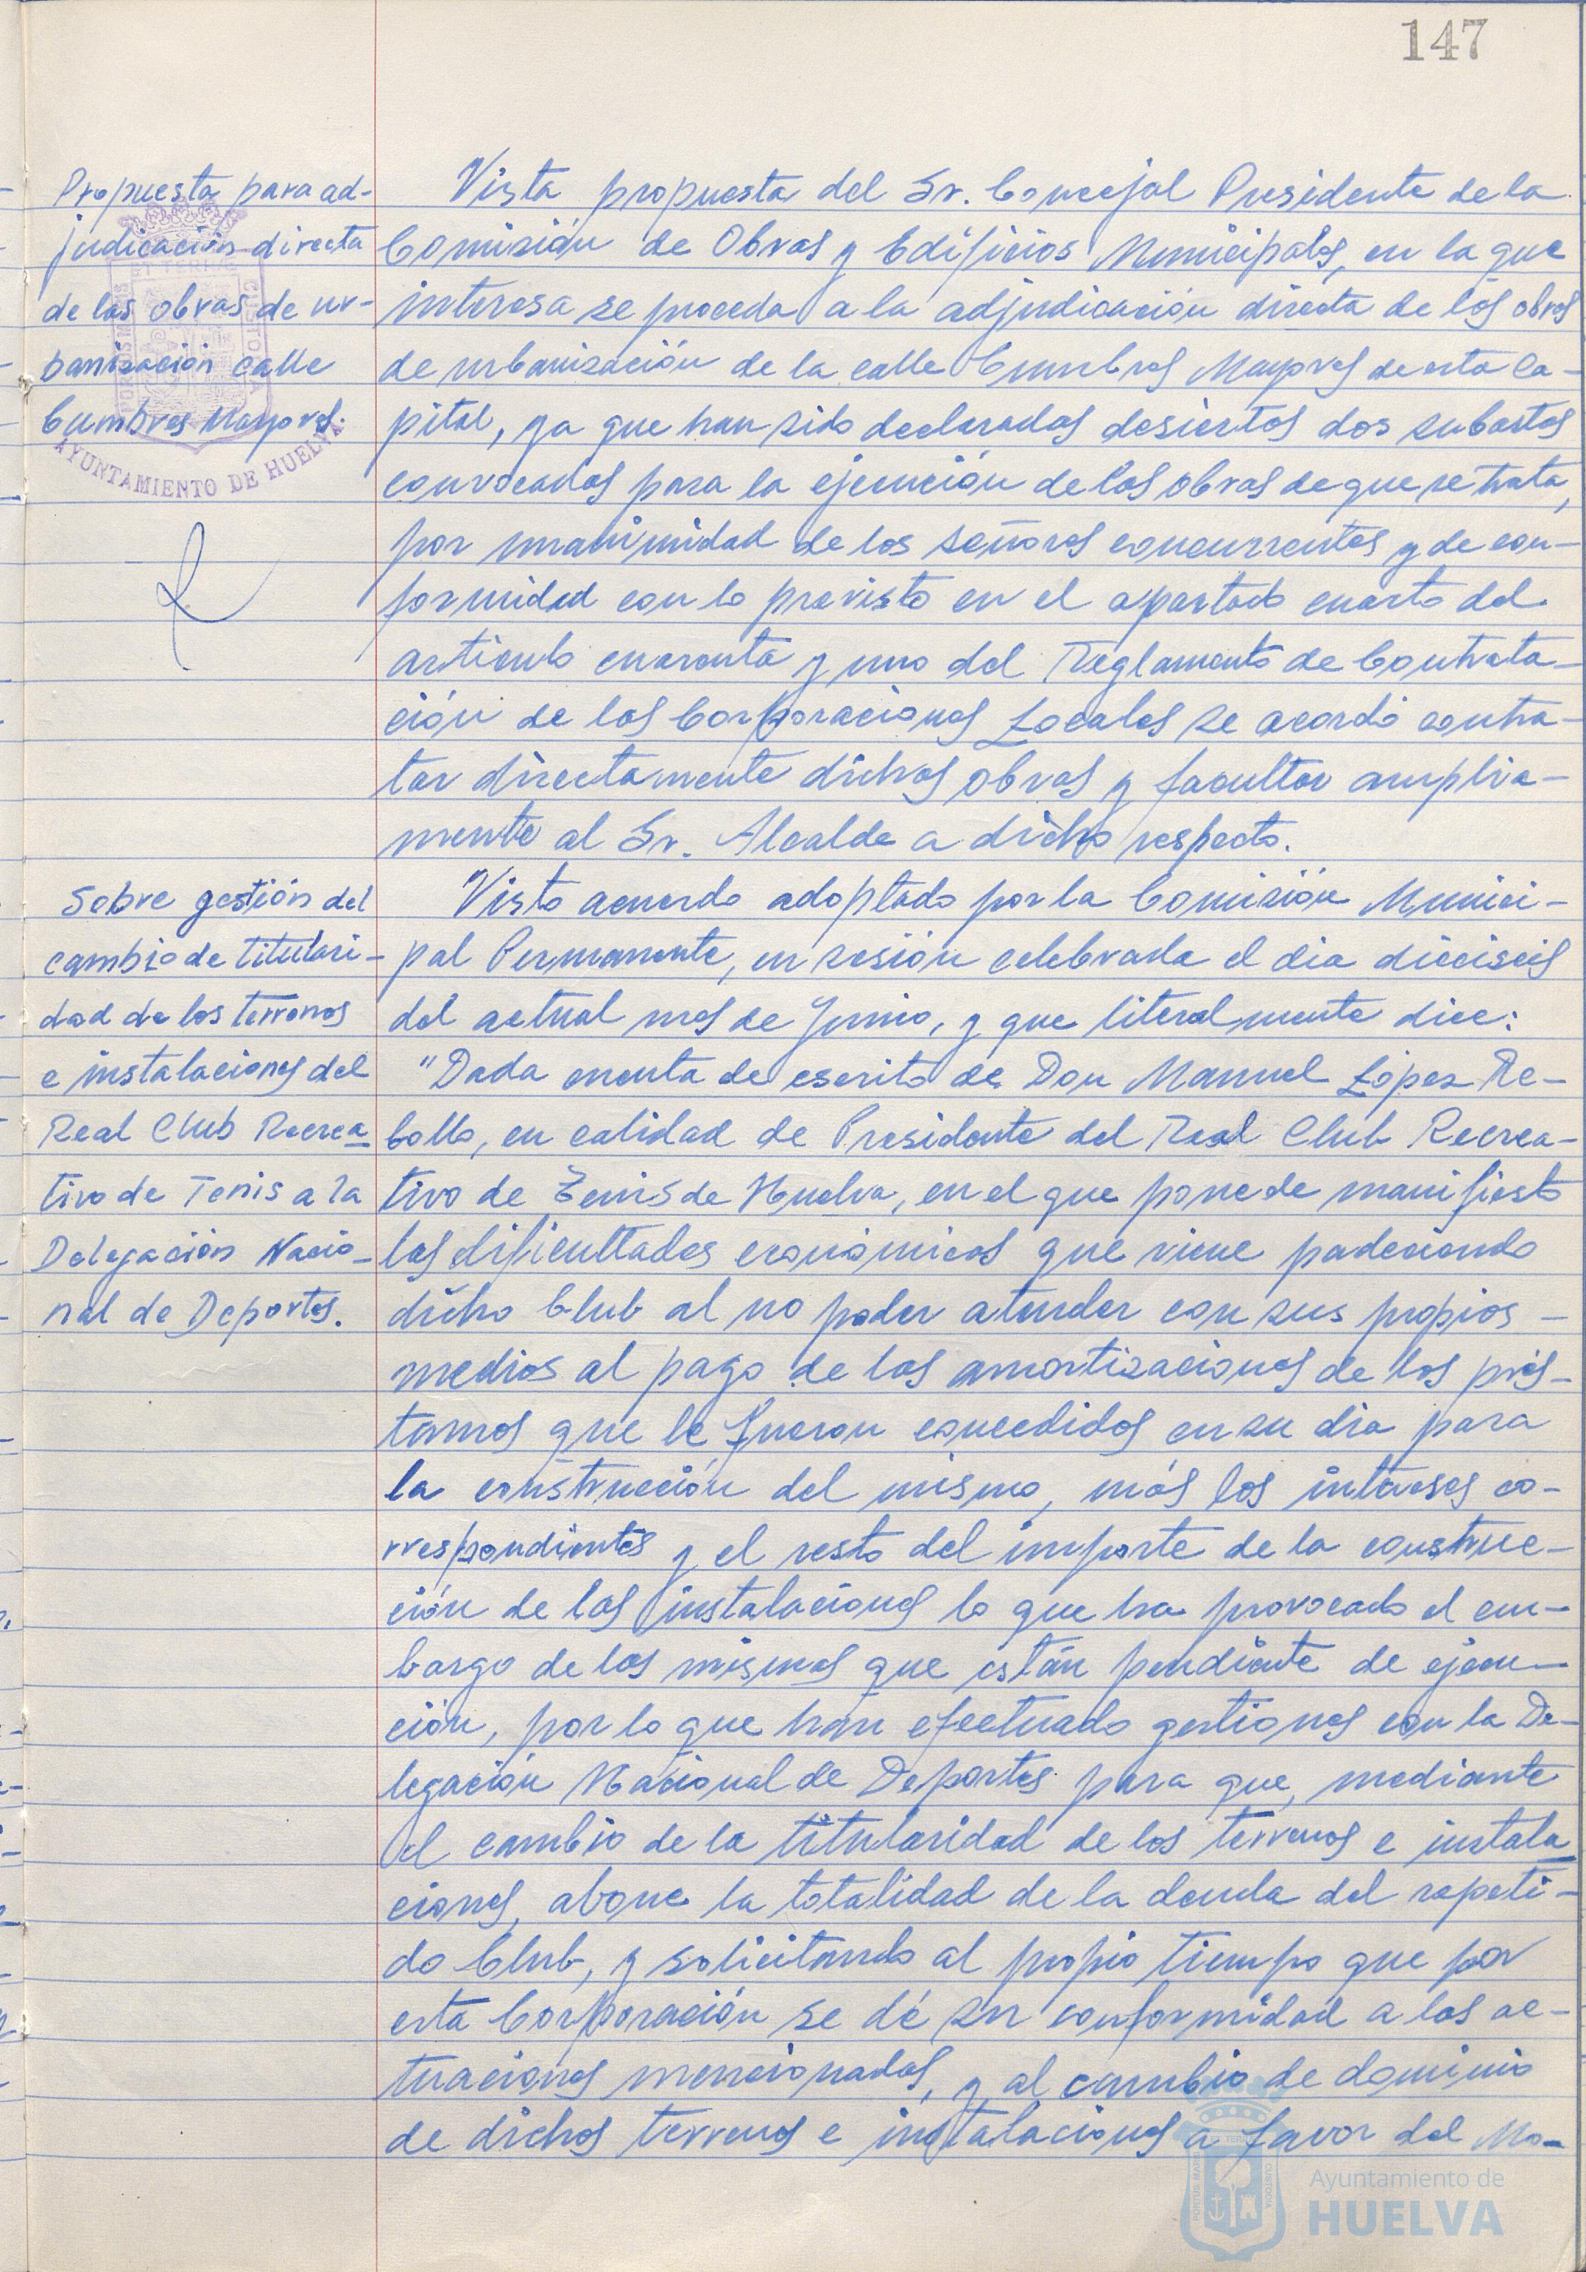 147
Propuesta para ad-
judicación directa
de las obras de ur-
banización calle
Cumbres Mayores.
AYUNTAMIENTO DE HUELVA
Vista propuesta del Sr. Concejal Presidente de la
Comisión de Obras y Edificios Municipales, en la que
interesa se proceda a la adjudicación directa de las obras
de urbanización de la calle Cumbres Mayores de esta Ca-
pital, ya que han sido declaradas desiertas dos subastas
convocadas para la ejecución de las obras de que se trata,
por unanimidad de los señores concurrentes y de con-
formidad con lo previsto en el apartado cuarto del
artículo cuarenta y uno del Reglamento de Contrata-
ción de las Corporaciones Locales se acordó contra-
tar directamente dichas obras y facultar amplia-
mente al Sr. Alcalde a dicho respecto.
Sobre gestión del
cambio de titulari-
dad de los terrenos
e instalaciones del
Real Club Recrea-
tivo de Tenis a la
Delegación Nacio-
nal de Deportes.
Visto acuerdo adoptado por la Comisión Munici-
pal Permanente, en sesión celebrada el dia dieciseis
del actual mes de Junio, y que literalmente dice:
"Dada cuenta de escrito de Don Manuel López Re-
bollo, en calidad de Presidente del Real Club Recrea-
tivo de Tenis de Huelva, en el que pone de manifiesto
las dificultades económicas que viene padeciendo
dicho Club al no poder atender con sus propios -
medios al pago de las amortizaciones de los prés-
tamos que le fueron concedidos en su dia para
la construcción del mismo, más los intereses co-
rrespondientes y el resto del importe de la construc-
ción de las instalaciones lo que ha provocado el em-
bargo de las mismas que están pendiente de ejecu-
ción, por lo que han efectuado gestiones con la De-
legación Nacional de Deportes para que, mediante
el cambio de la titularidad de los terrenos e instala-
ciones, abone la totalidad de la deuda del repeti-
do Club, y solicitando al propio tiempo que por
esta Corporación se dé su conformidad a las ac-
tuaciones mencionadas, y al cambio de dominio
de dichos terrenos e instalaciones a favor del Mo-
Ayuntamiento de
HUELVA